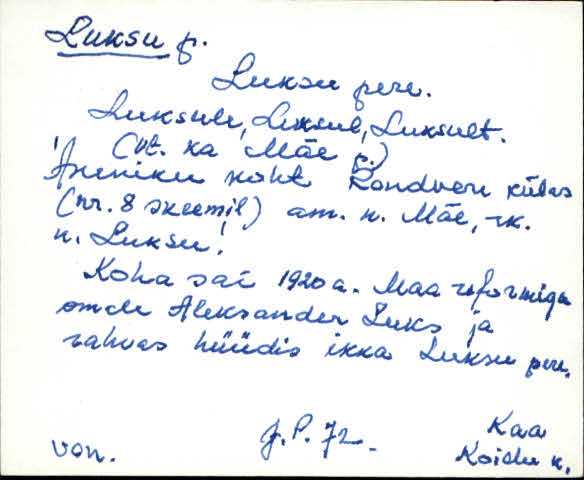 Luksu p.
Luksu pere.
Luksule, Luksul, Luksult.
(vt. ka Mäe p.)
'Areniku koht Rondveru külas
(nr. 8 skeemil) am. n. Mäe, rk.
n. Luksu.'
Koha sai 1920 a. Maareformiga
omale Aleksander Luks ja
rahvas hüüdis ikka Luksu pere.
J.P. 72.
Kaa
von.
Koidu k.